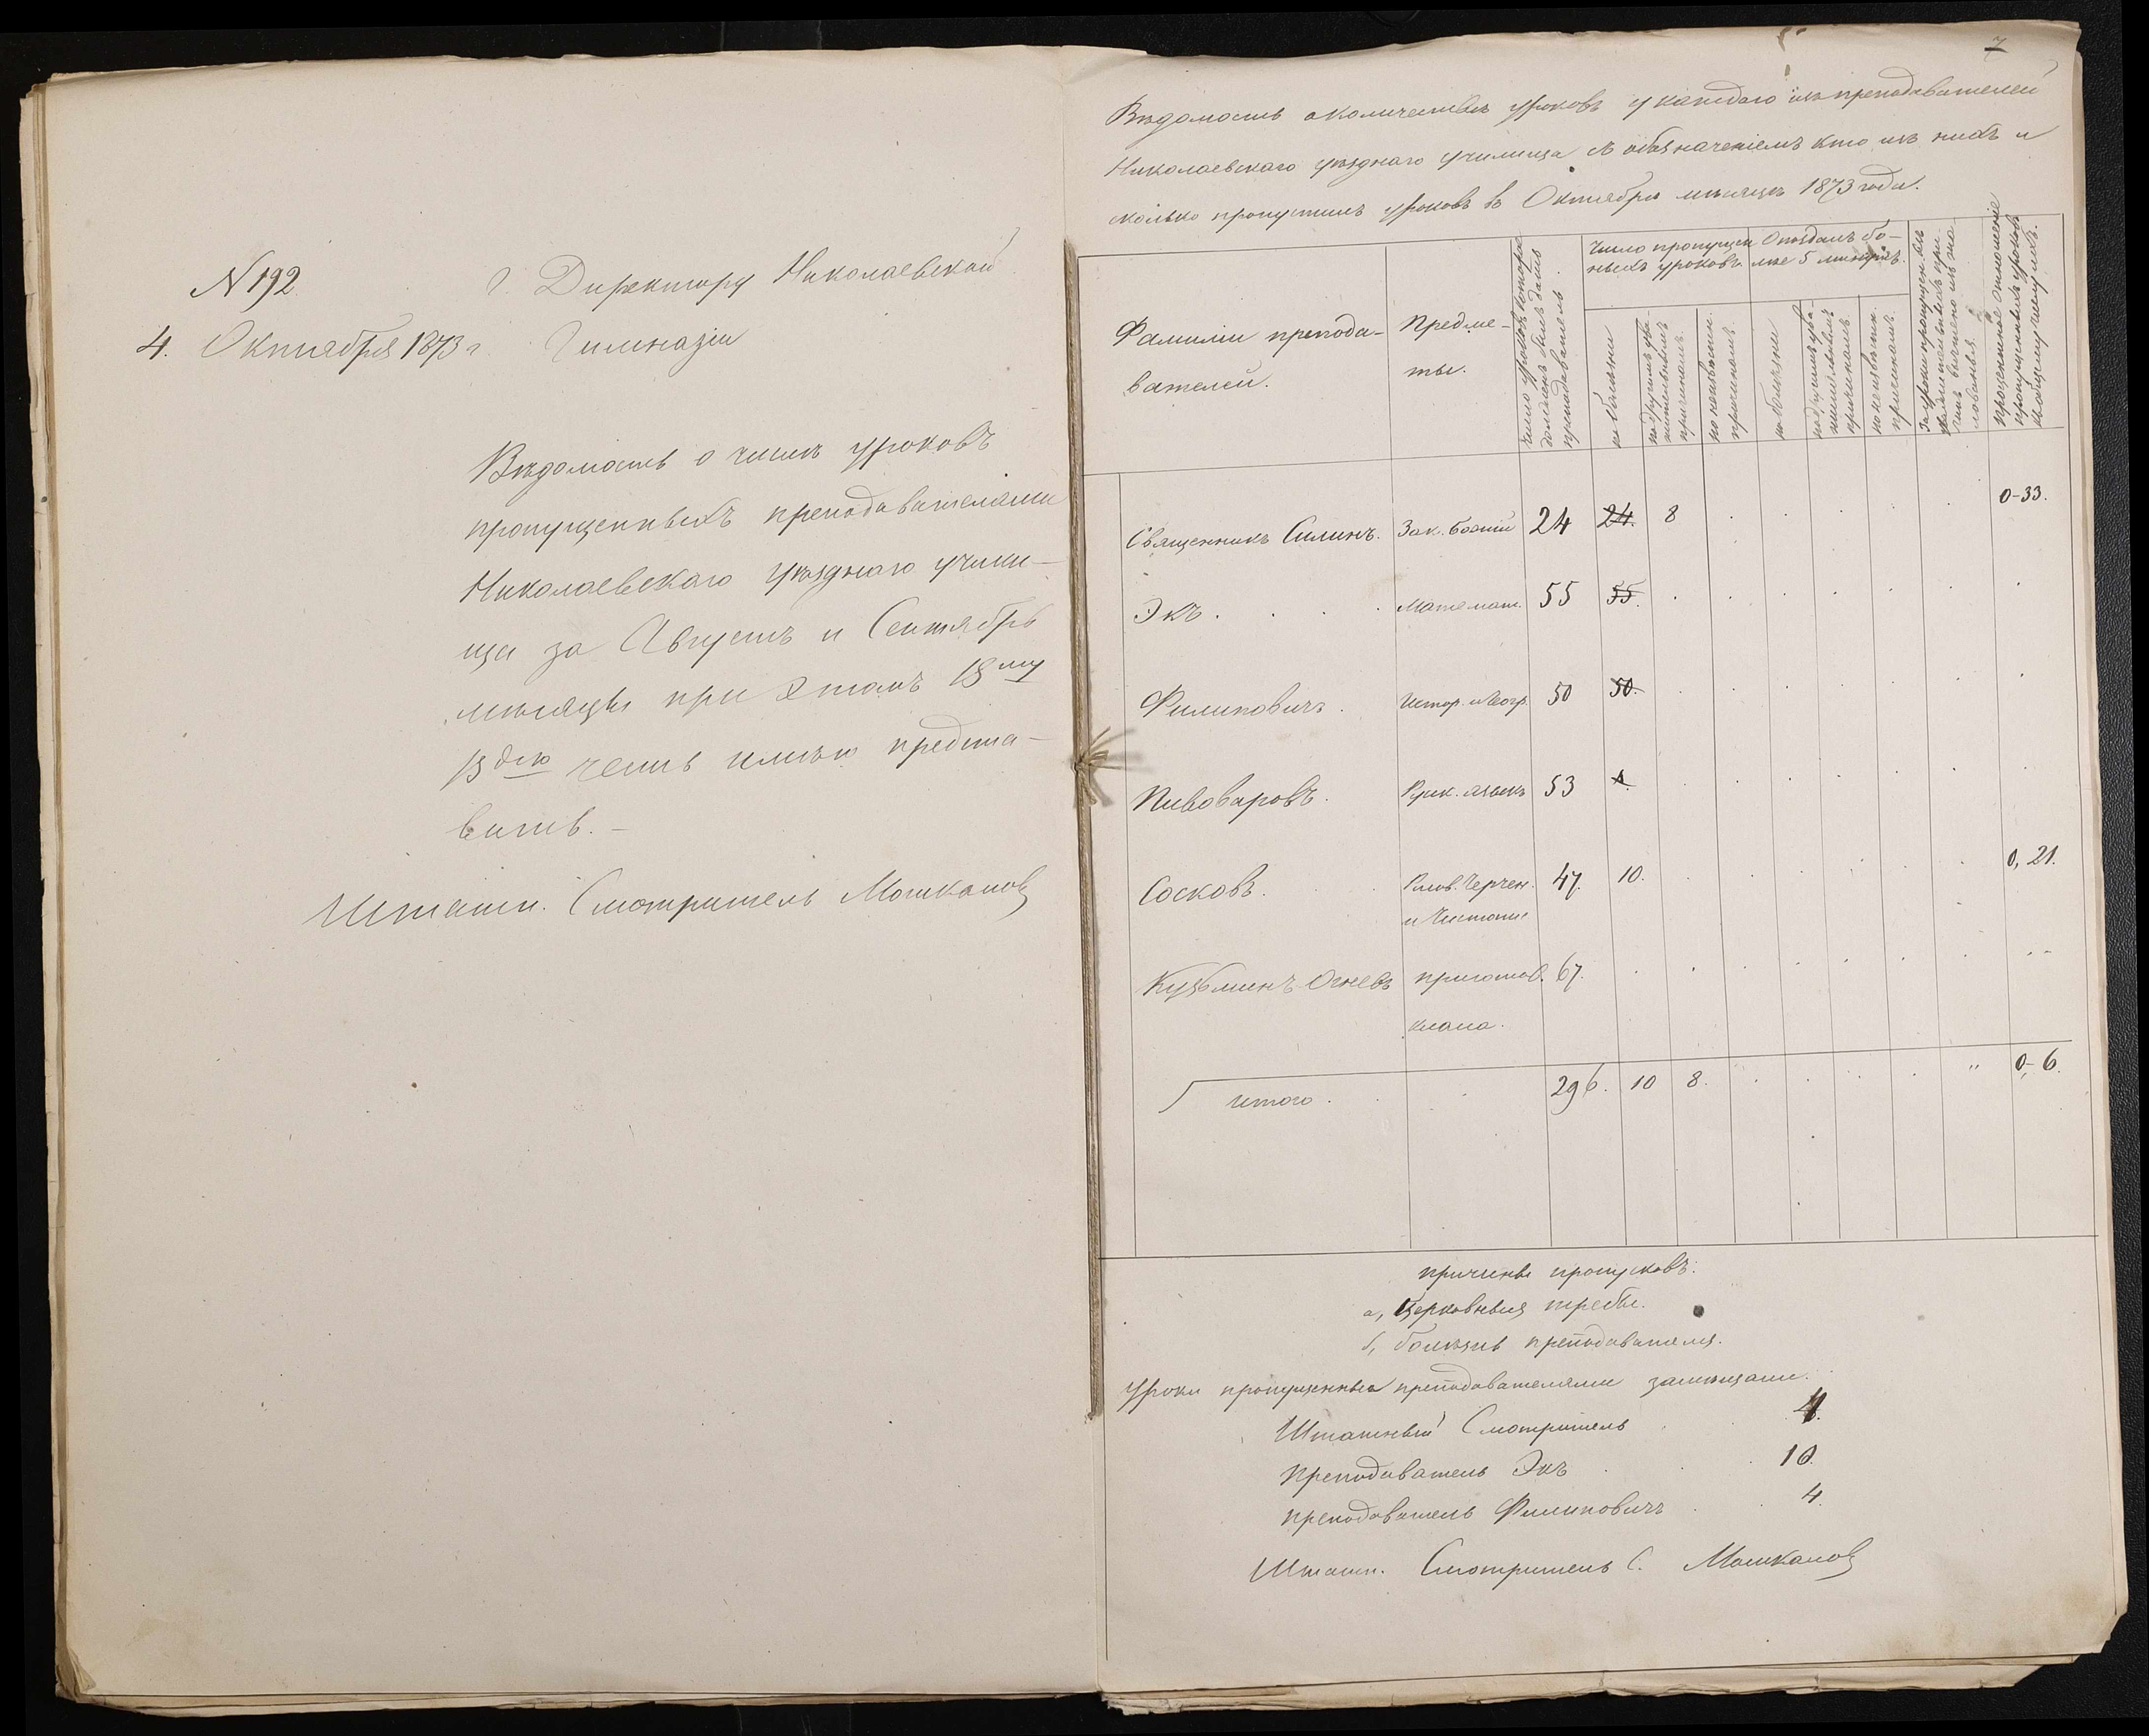 № 192
4. Октября 1873 г
Г. Директору Николаевской
Гимназіи
Вѣдомость о числѣ уроковъ
пропущенныхъ преподавателями
Николаевскаго уѣзднаго учили-
ща за Августъ и Сентябрь
мѣсяцы при этомъ В му
В дію честь имѣю предста-
вить. –
Штатн. Смотритель Мошкановъ
7
Вѣдомость о количествѣ уроковъ у каждаго изъ преподавателей
Николаевскаго уѣзднаго училища съ обозначеніемъ кто изъ нихъ и
сколько пропустилъ уроковъ въ Октябрѣ мѣсяцѣ 1873 года.
Фамиліи препода-
вателей.
Предме-
ты.
Число уроковъ которое
долженъ былъ дать
преподаватель
Число пропущен
ныхъ уроковъ
по болѣзни
по другимъ ува-
жительнымъ
причинамъ.
по неизвѣстн.
причинамъ.
Опоздалъ бо-
лѣе 5 минутъ.
по болѣзни
по другимъ ува-
жительнымъ
причинамъ
по неизвѣстн.
причинамъ.
За уроки пропущен.
причинъ вычтено изъ жа-
лованья
процентное отношеніе
пропущенныхъ уроковъ
къ общему числу ихъ.
Священникъ Силинъ. Зак. Божій 24 24. 8 0-33.
Экъ. Математ. 55 55.
Филиповичъ. Истор. и Геогр. 50 50.
Пивоваровъ. Руск. языкъ 53
Сосковъ. Рисов. Черчен. 47. 10. 0, 21.
и Чистопис
Кузьминъ Огневъ приготов. 67.
класса.
Итого 296. 10 8. " 0,-6.
причины пропусковъ:
а, Церковныя требы.
б, болѣзнь преподавателя.
Уроки пропущенные преподавателями замѣщали.
Штатный Смотритель 4.
Преподаватель Экъ 10.
преподаватель Филиповичъ 4.
Штатн. Смотритель С. Мошкановъ